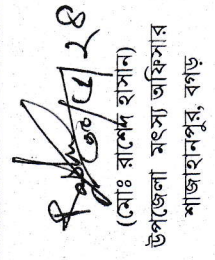 (মোঃ রাশেদ হাসান)
উপজেলা মৎস্য অফিসার
শাজাহানপুর, বগুড়া